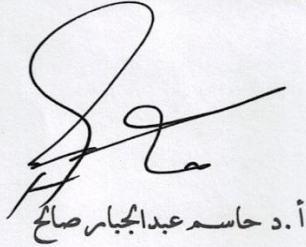 أ.د حاسم عبدالجبار صالح